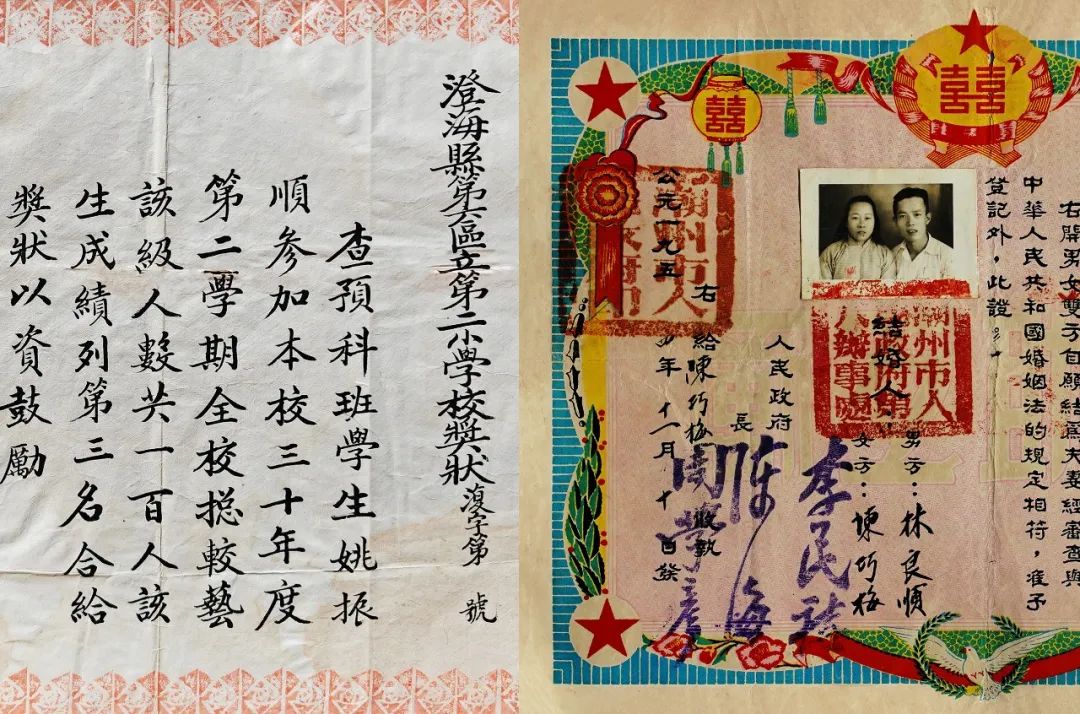 澄海縣第六區立第二小學校獎狀 復字第 號
查預科班學生姚振
順參加本校三十年度
第二學期全校捴較藝
該級人數共一百人該
生成績列第三名合給
獎狀以資鼓勵
囍
囍
右開男女雙方自願結爲夫妻經審查與
中華人民共和國婚姻法的規定相符，准予
登記外，此證
結婚人
男方：林良順
女方：陳巧梅
潮州市人
辦事處
人民政府
長
李民
陳海
右給陳巧梅收執
公元一九五 年十一月十日發
潮州市人